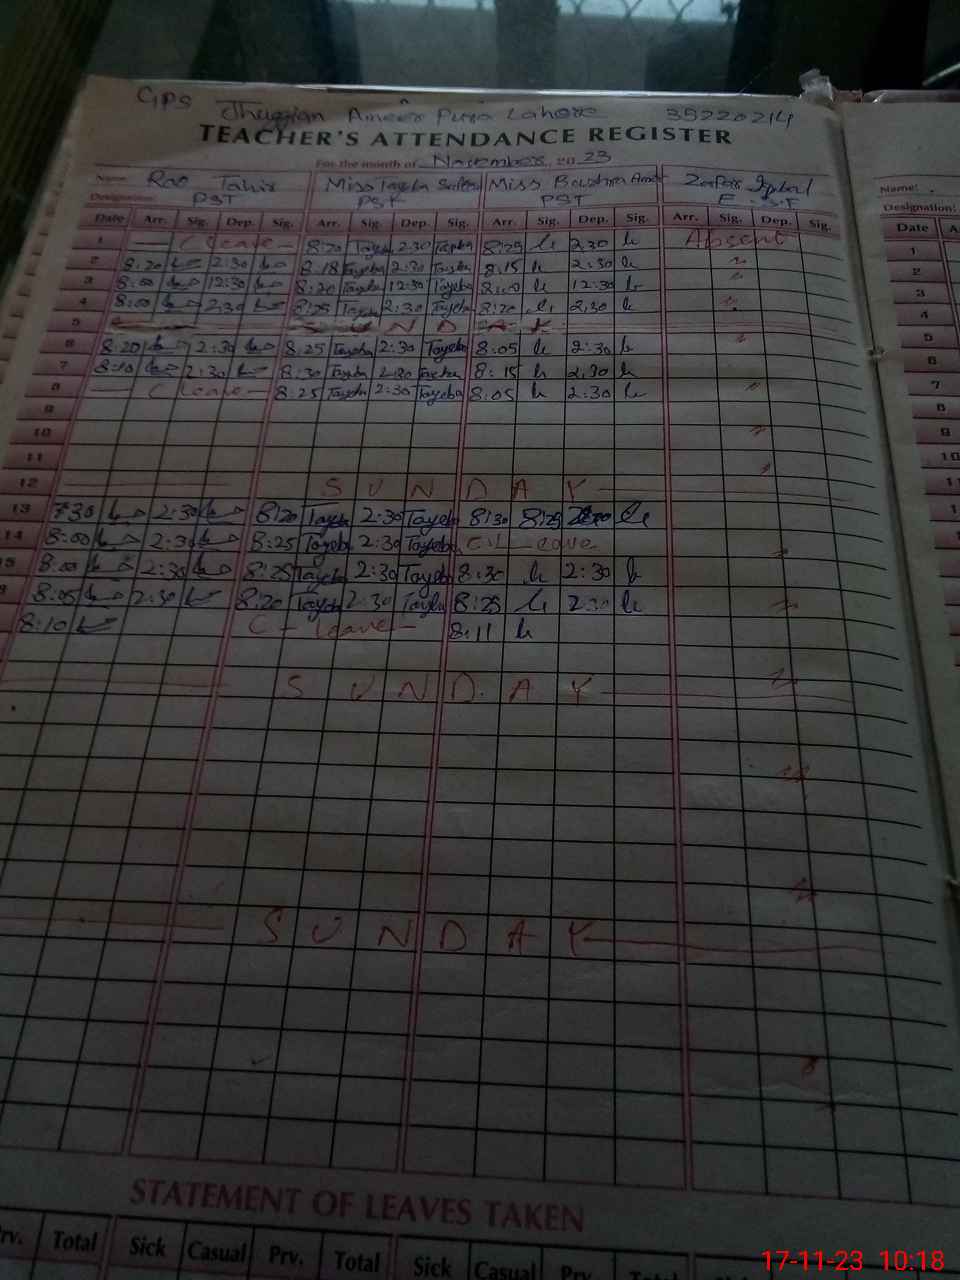 GPS Jhugian Ameer Pura Lahore 35220214
TEACHER'S ATTENDANCE REGISTER
For the month of November 2023
Name: Rao Tahir Miss Tayeba Miss Bushra Zafar Iqbal
Name:
Designation: PST PST PST
Designation:
Date Arr. Sig. Dep. Sig. Arr. Sig. Dep. Sig. Arr. Sig. Dep. Sig. Arr. Sig. Dep. Sig.
Date
1 C leave 8:20 Tayeba 2:30 Tayeba 8:25 2:30 Absent
2 8:20 2:30 8:18 Tayeba 2:30 Tayeba 8:15 2:30
3 8:00 12:30 8:20 Tayeba 12:30 Tayeba 12:30
4 8:00 2:30 8:25 Tayeba 2:30 Tayeba 8:20 2:30
5 SUNDAY
6 8:20 2:30 8:25 Tayeba 2:30 Tayeba 8:05 2:30
7 8:10 2:30 8:30 Tayeba 2:30 Tayeba 8:15 2:30
8 C leave 8:25 Tayeba 2:30 Tayeba 8:05 2:30
9
10
11
12 SUNDAY
13 7:30 2:30 8:20 Tayeba 2:30 Tayeba 8:30 8:25
14 8:00 2:30 8:25 Tayeba 2:30 Tayeba C-Leave
8:00 2:30 8:25 Tayeba 2:30 Tayeba 8:30 2:30
8:05 2:30 8:20 Tayeba 2:30 Tayeba 8:25 2:30
8:10 C-leave 8:11
SUNDAY
SUNDAY
1
2
3
4
5
6
7
8
9
10
STATEMENT OF LEAVES TAKEN
Prv. Total Sick Casual Prv. Total Sick Casual Prv. Total
17-11-23 10:18